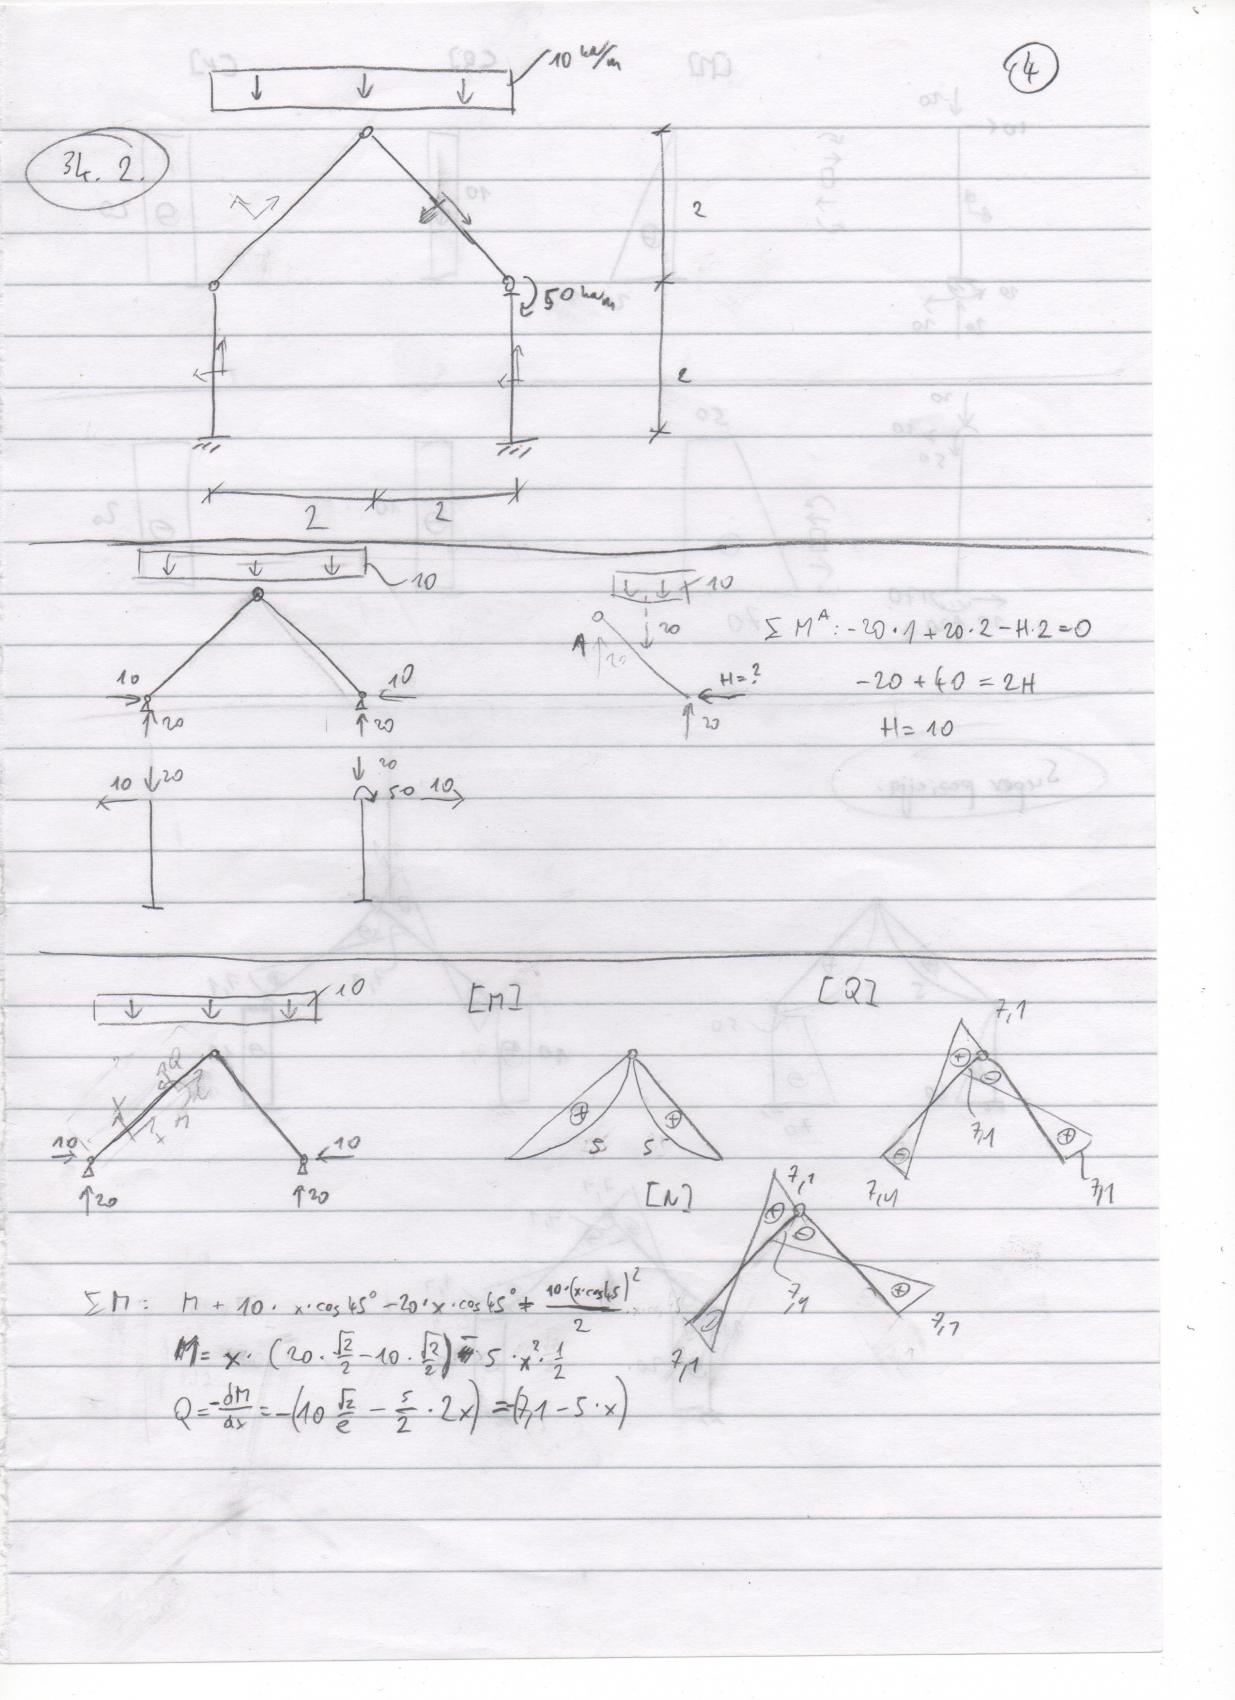 10 kN/m
4
34. 2.
2
50 kNm
2
2 2
10
10
20
10 10
20 20
H=?
20
Σ M^A: -20·1+20·2-H·2=0
-20+40=2H
H=10
10 20
20
50 10
10
[M]
[Q]
7,1
Q
N
x
M
10 10
20 20
+ +
5 5
+ -
- +
7,1
7,1 7,1
[N]
7,1
+ -
7,1
- +
7,1
7,1
ΣM: M + 10· x·cos45° -20·x·cos45° + 10·(x·cos45)²/2
M= x· (20·√2/2 -10·√2/2) - 5·x²·1/2
Q=-dM/dx=-(10 √2/2 - 5/2·2x) =-(7,1-5·x)